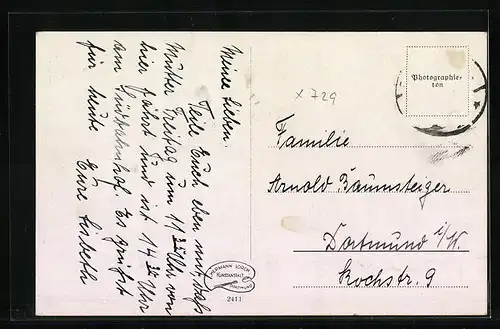 Meine Lieben.
Teile Euch eben mit, daß
Mutter Freitag um 11 22 Uhr von
hier fährt und ist 14 30 Uhr
am Südbahnhof. Es grüßt
für heute
Eure Lisbeth
Photographie-
ton
x 729
Familie
Arnold Baumsteiger
Dortmund i/W.
Kochstr. 9
HERMANN LORCH
KUNSTANSTALT
DORTMUND
2411